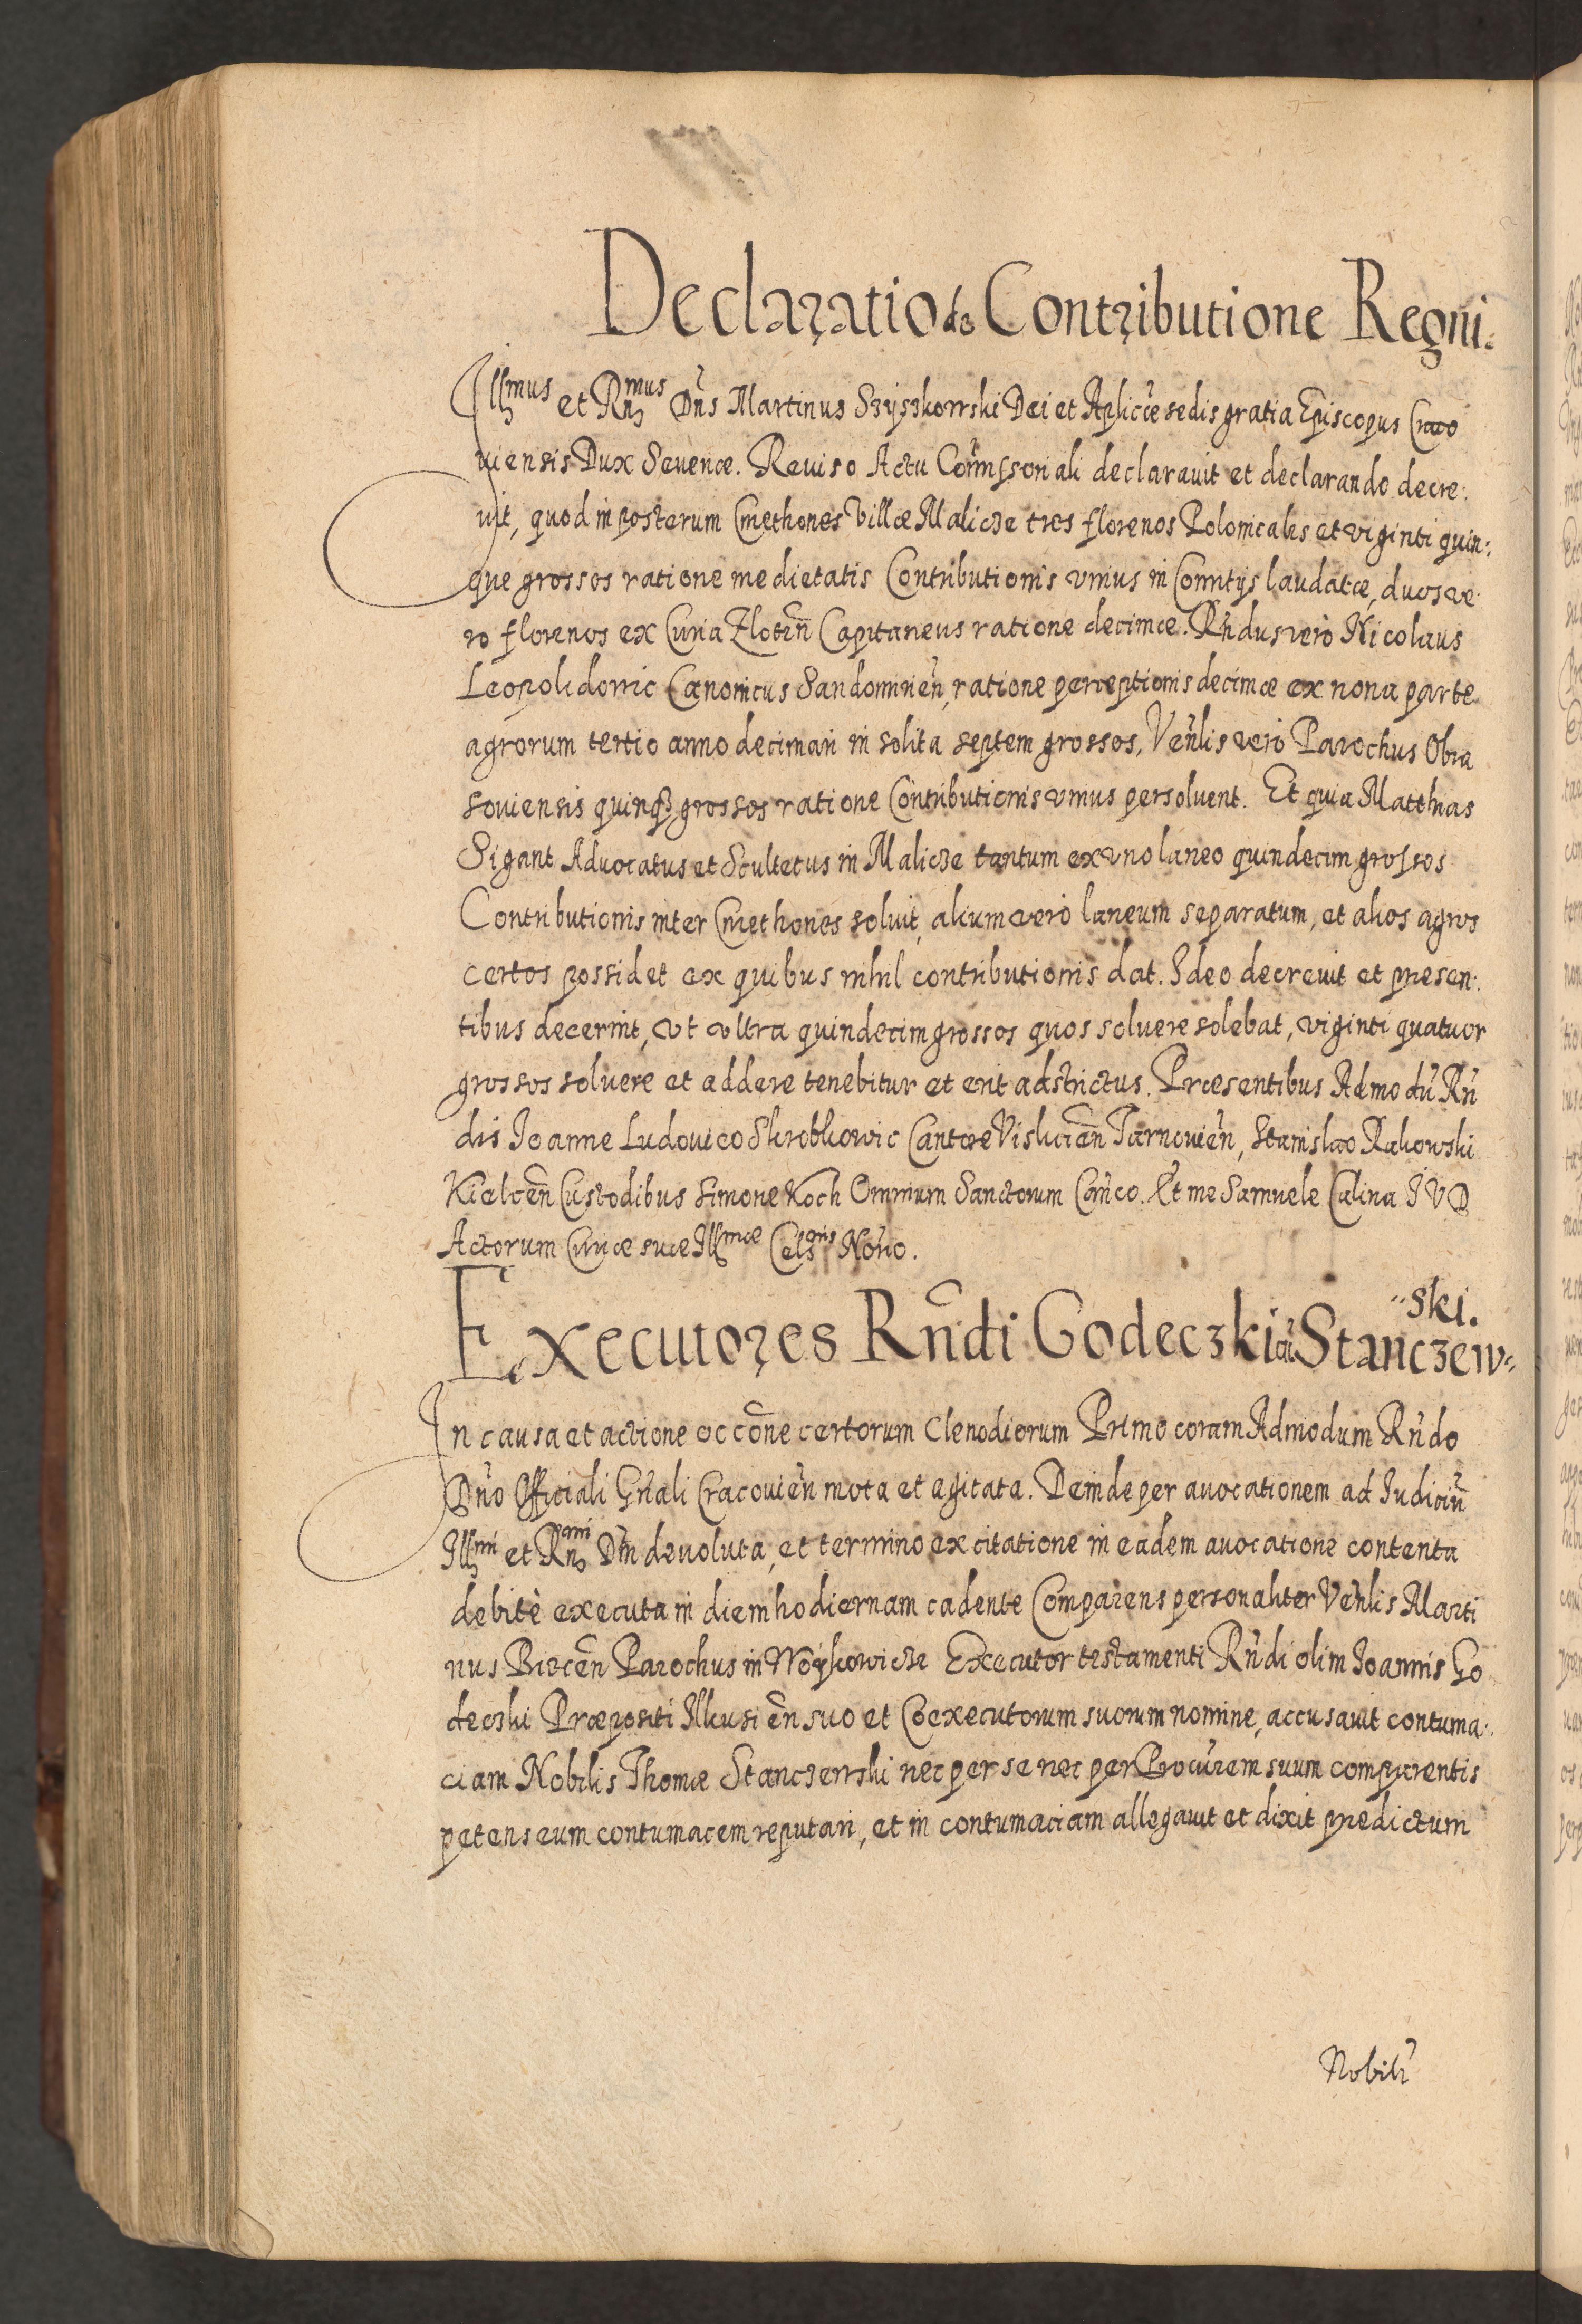 Declaratio de Contributione Regni.
Illmus et Rnmus Dns Martinus Szyszkowski Dei et Aplicæ sedis gratia Episcopus Craco
uiensis Dux Seueriæ. Reuiso Actu Commissoriali declarauit et declarando decre:
uit, quod in posterum Cmethones Villæ Malicze tres florenos Polonicales et viginti quin:
que grossos ratione medietatis Contributionis vnius in Comitijs laudatæ, duos ve:
ro florenos ex Curia Zloten Capitaneus ratione decimæ. Rndus vero Nicolaus
Leopolidowic Canonicus Sandomirien, ratione perceptionis decimæ ex nona parte
agrorum tertio anno decimari in solita septem grossos, Venlis vero Parochus Obra
souiensis quinq3 grossos ratione Contributionis vnius persoluent. Et quia Matthias
Sigant Aduocatus et Scultetus in Malicze tantum ex vno laneo quindecim grossos
Contributionis inter Cmethones soluit, alium vero laneum separatum, et alios agros
certos possidet ex quibus nihil contributionis dat. Ideo decreuit et presen:
tibus decernit, vt vltra quindecim grossos quos soluere solebat, viginti quatuor
grossos soluere et addere tenebitur et erit adstrictus. Præsentibus Admodu Rn
dis Joanne Ludouico Skrobkowic Cantore Vislicien Tarnouien, Stanislao Rakowski
Kielcen Custodibus Simone Koch Omnium Sanctorum Canco. Et me Samuele Calina J V D
Actorum Curiæ suæ Illmæ Celsnis Nòrio.
Executores Rndi Godeczki cu Stanczew=
=ski.
In causa et actione occone certorum Clenodiorum Primo coram Admodum Rndo
Dno Officiali Gnali Cracouien mota et agitata. Deinde per auocationem ad Iudiciu
Illmi et Rnmi Dni deuoluta, et termino ex citatione in eadem auocatione contenta
debitè executa in diem hodiernam cadente Comparens personaliter Venlis Marti
nus Biecen Parochus in Woyskowicze Executor testamenti Rndi olim Joannis Go
deczki Præpositi Ilkusien suo et Coexecutorum suorum nomine, accusauit contuma:
ciam Nobilis Thomæ Stanczewski nec per se nec per Procurem suum comparentis
petens eum contumacem reputari, et in contumaciam allegauit et dixit predictum
Nobil